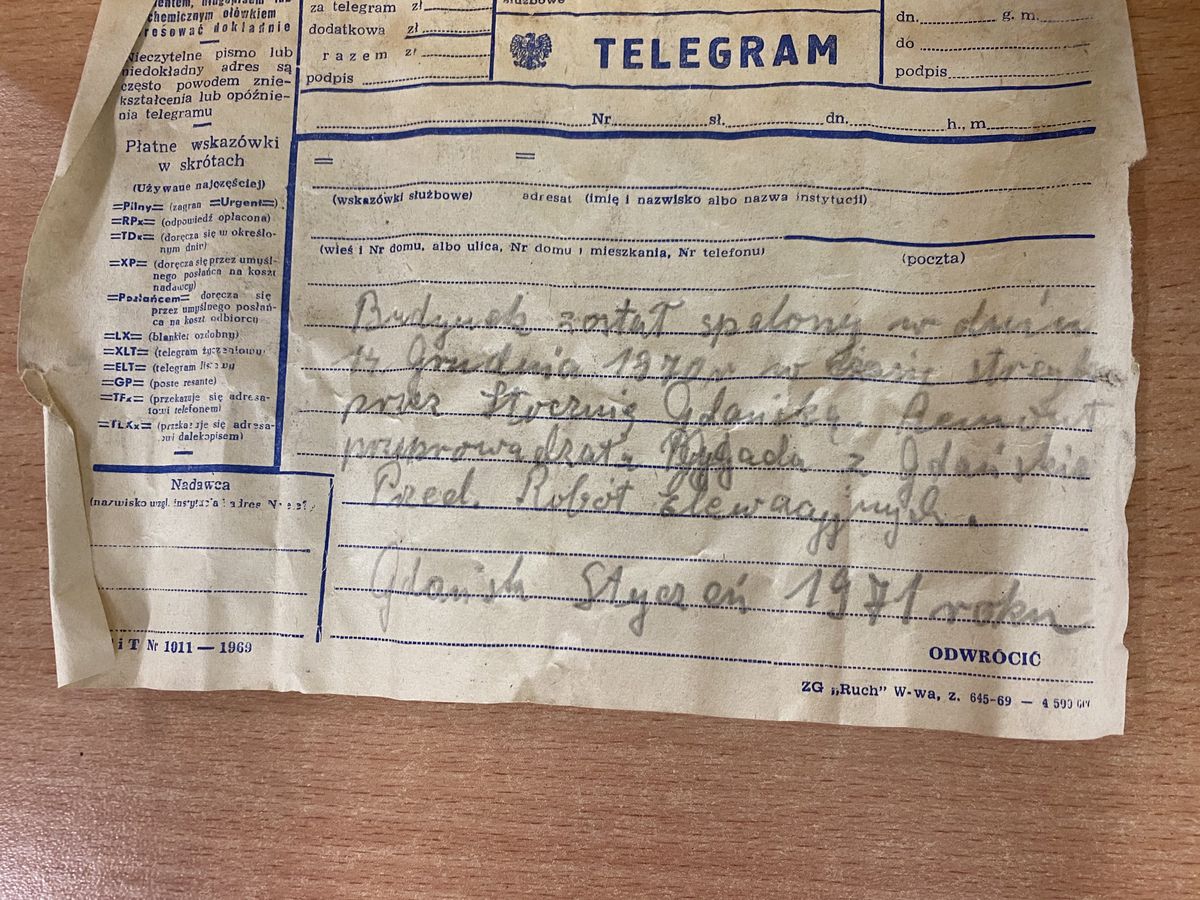 chemicznym ołówkiem
resować dokładnie
Nieczytelne pismo lub
niedokładny adres są
często powodem znie-
kształcenia lub opóźnie-
nia telegramu
Płatne wskazówki
w skrótach
(Używane najczęściej)
=Pilny= (zagran =Urgent=)
=RPx= (odpowiedź opłacona)
=TDx= (doręcza się w określo-
nym dniu)
=XP= (doręcza się przez umyśl-
nego posłańca na koszt
nadawcy)
=Posłańcem= doręcza się
przez umyślnego posłań-
ca na koszt odbiorcy
=LX= (blankiet ozdobny)
=XLT= (telegram życzeniowy)
=ELT= (telegram listowy
=GP= (poste restante)
=TFx= (przekazuje się adresa-
towi telefonem)
=TLXx= (przekazuje się adresa-
towi dalekopisem)
Nadawca
(nazwisko wzgl. instytucja i adres
iT Nr 1011 — 1969
za telegram zł
dodatkowa zł
razem zł
podpis
służbowe
TELEGRAM
dn. g. m.
do
podpis
Nr sł. dn. h., m
= =
(wskazówki służbowe) adresat (imię i nazwisko albo nazwa instytucji)
(wieś i Nr domu, albo ulica, Nr domu i mieszkania, Nr telefonu) (poczta)
Budynek został spalony w dniu
14 Grudnia 1970r w czasie strajku
przez Stocznię Gdańską. Remont
przeprowadzała Brygada z Gdańska
Przed. Robót Elewacyjnych.
Gdańsk Styczeń 1971 roku
ODWRÓCIĆ
ZG „Ruch” W-wa, z. 645-69 — 4 500